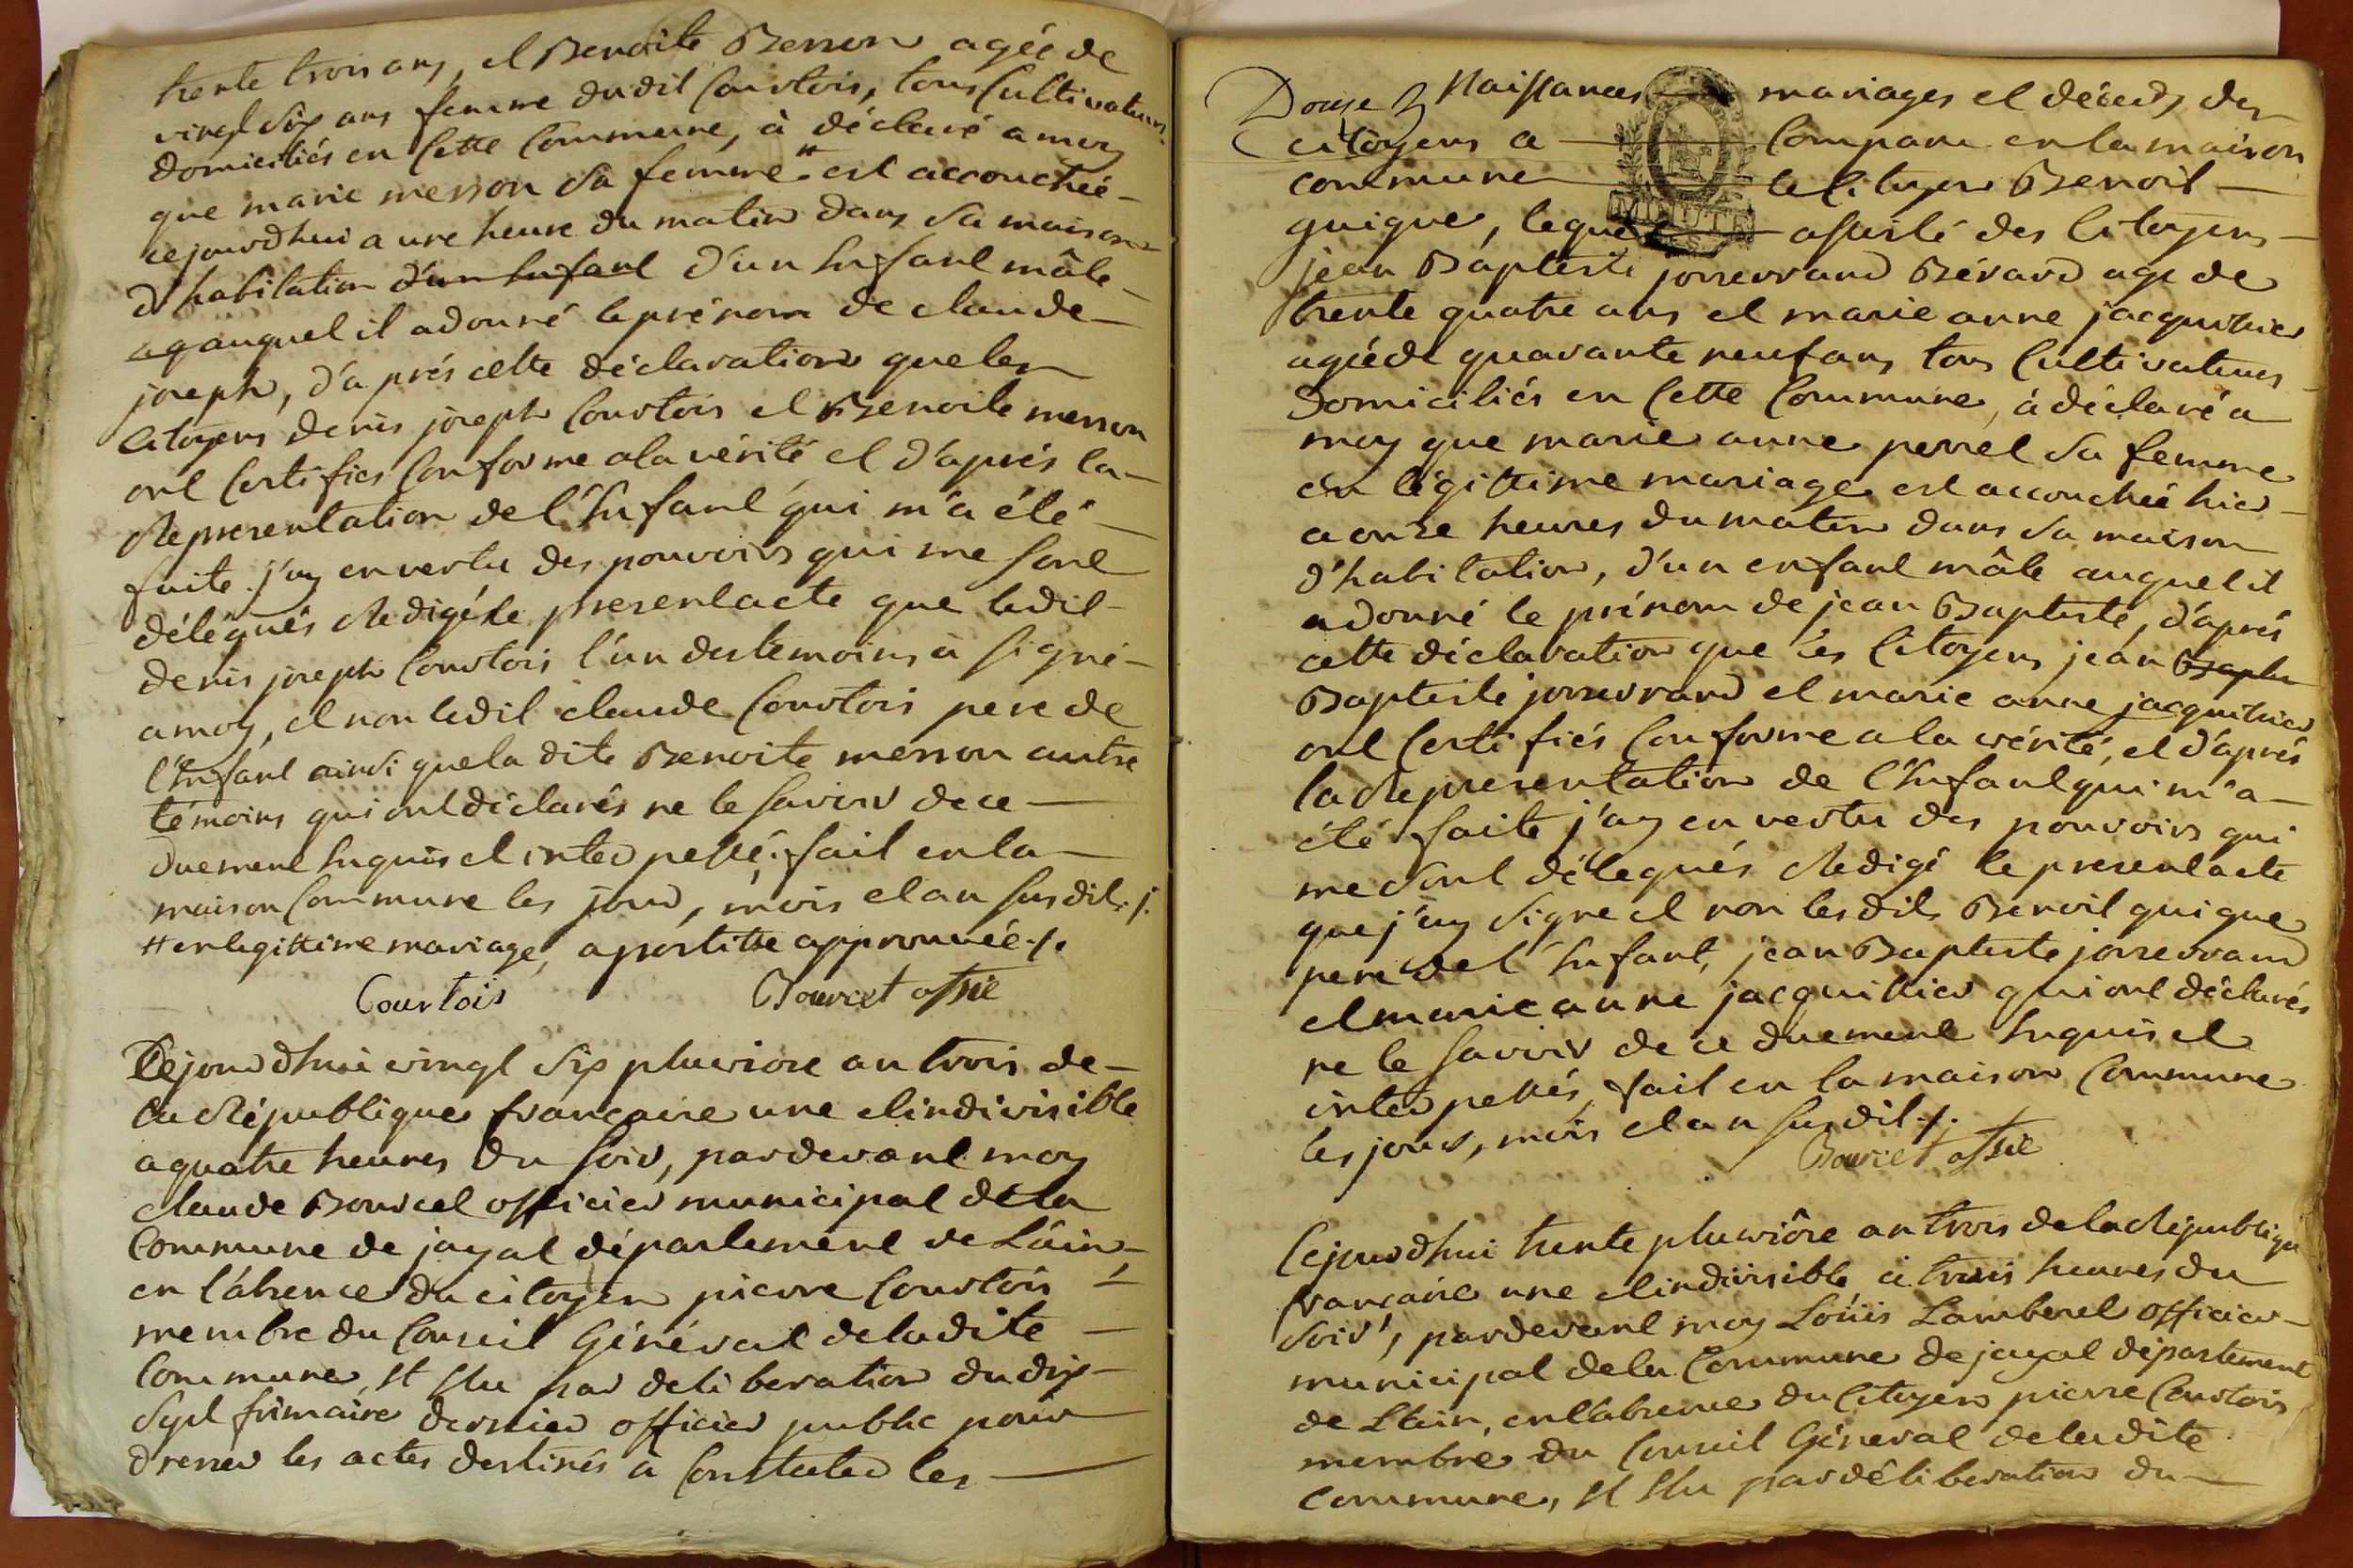 trente trois ans, et Benoite Besson agée de
vingt six ans femme dudit Courtois, tous Cultivateurs
domiciliés en Cette Commune, à déclaré a moy
que marie messon sa femme # est accouchée
cejourdhui a une heure du matin dans sa maison
d'habitation d'un Enfant d'un Enfant mâle
auquel il a donné le prénom de claude
joseph, d'aprés cette déclaration que les
Citoyens denis joseph Courtois et Benoite messon
ont Certifies Conforme a la vérité et d'aprés la
Representation de l'Enfant qui m'a été
faite j'ay en vertu des pouvoirs qui me sont
délégués Redigé le present acte que ledit
denis joseph Courtois l'un des temoins à signé
a moy, et non ledit claude Courtois pere de
l'Enfant ainsi que la dite Benoite messon autre
témoins qui ont déclarés ne le savoir de ce
duement Enquis et interpellé, fait en la
maison Commune les jour, mois et an susdit ./.
# en legittime mariage, apostille approuvée ./.
Courtois Bourcet offie
Cejourdhui vingt six pluviose an trois de
la République française une et indivisible
a quatre heures du soir, pardevant moy
claude Bourcet officier municipal de la
Commune de jayat département de L'ain,
en l'absence du citoyen pierre Courtois
membre du Conseil Général de ladite
Commune, Et Elu par deliberation du dix
sept frimaire dernier officier public pour
dresser les actes destinés à Constater les
Douze
Naissances mariages et déceds des
citoyens a Comparu en la maison
commune le Citoyen Benoit
guigue, lequel assisté des Citoyens
jean Baptiste josserrand Bérard age de
trente quatre ans et marie anne jacquithier
agée de quarante neuf ans tous Cultivateurs
Domiciliés en Cette Commune, à déclaré a
moy que marie anne perret sa femme
en légittime mariage est accouchée hier
a onze heures du matin dans sa maison
d'habitation, d'un enfant mâle auquel il
a donné le prénom de jean Baptiste, d'aprés
cette déclaration que les Citoyens jean Baptis
Baptiste josserrand et marie anne jacquithier
ont Certifiés Conforme a la vérité, et d'aprés
la Representation de l'Enfant qui m'a
été faite j'ay en vertu des pouvoirs qui
me sont délegués Redigé le present acte
que j'ay signé et non les dits Benoit guigue
pere de l'Enfant, jean Baptiste josserrand
et marie anne jacquithier qui ont déclarés
ne le savoir de ce duement Enquis et
interpellés, fait en la maison Commune
les jours, mois et an susdit ./.
Bourcet offie
Cejourdhui trente pluviôse an trois de la République
française une et indivisible à trois heures du
soir, pardevant moy Loüis Lamberet officier
municipal de la Commune de jayat département
de L'ain, en l'absence du Citoyen pierre Courtois
membre du Conseil Général de ladite
Commune, Et Elu par déliberation du